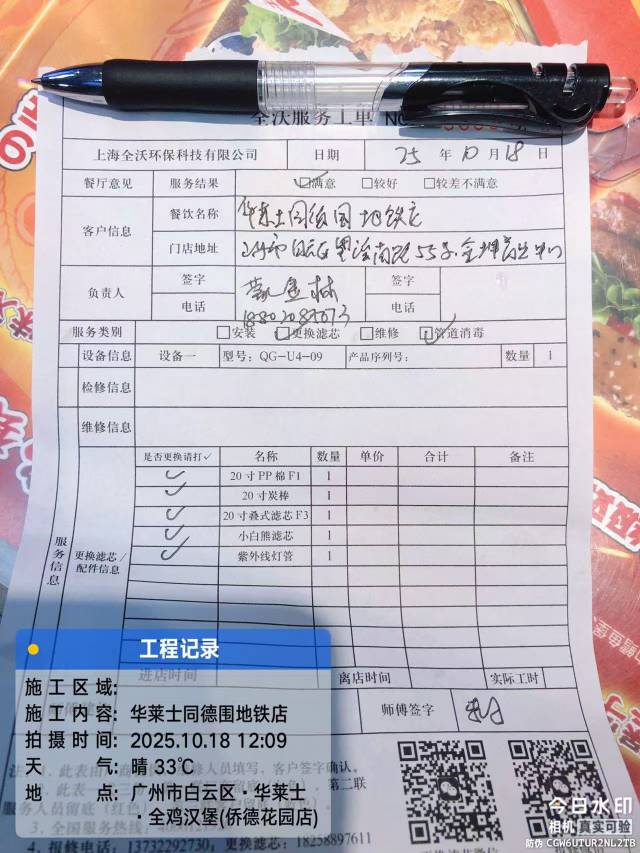 全沃服务工单 NO
上海全沃环保科技有限公司 日期 25 年 10 月 18 日
餐厅意见 服务结果 ☑满意 □较好 □较差不满意
客户信息 餐饮名称 华莱士同德围地铁店
门店地址
负责人 签字 签字
电话 电话
服务类别 □安装 □更换滤芯 □维修 ☑管道消毒
设备信息 设备一 型号: QG-U4-09 产品序列号: 数量 1
检修信息
维修信息
服务信息
更换滤芯/配件信息
是否更换请打✓ 名称 数量 单价 合计 备注
✓ 20寸PP棉F1 1
✓ 20寸炭棒 1
✓ 20寸叠式滤芯F3 1
✓ 小白熊滤芯 1
✓ 紫外线灯管 1
进店时间 离店时间 实际工时
师傅签字
工程记录
施工区域:
施工内容: 华莱士同德围地铁店
拍摄时间: 2025.10.18 12:09
天气: 晴 33℃
地点: 广州市白云区·华莱士·全鸡汉堡(侨德花园店)
人员填写，客户签字确认。
第二联
3.全国服务热线:
4.报修电话: 13732292730, 18258897611
今日水印
相机 真实可验
防伪 CGW6UTUR2NL2TB